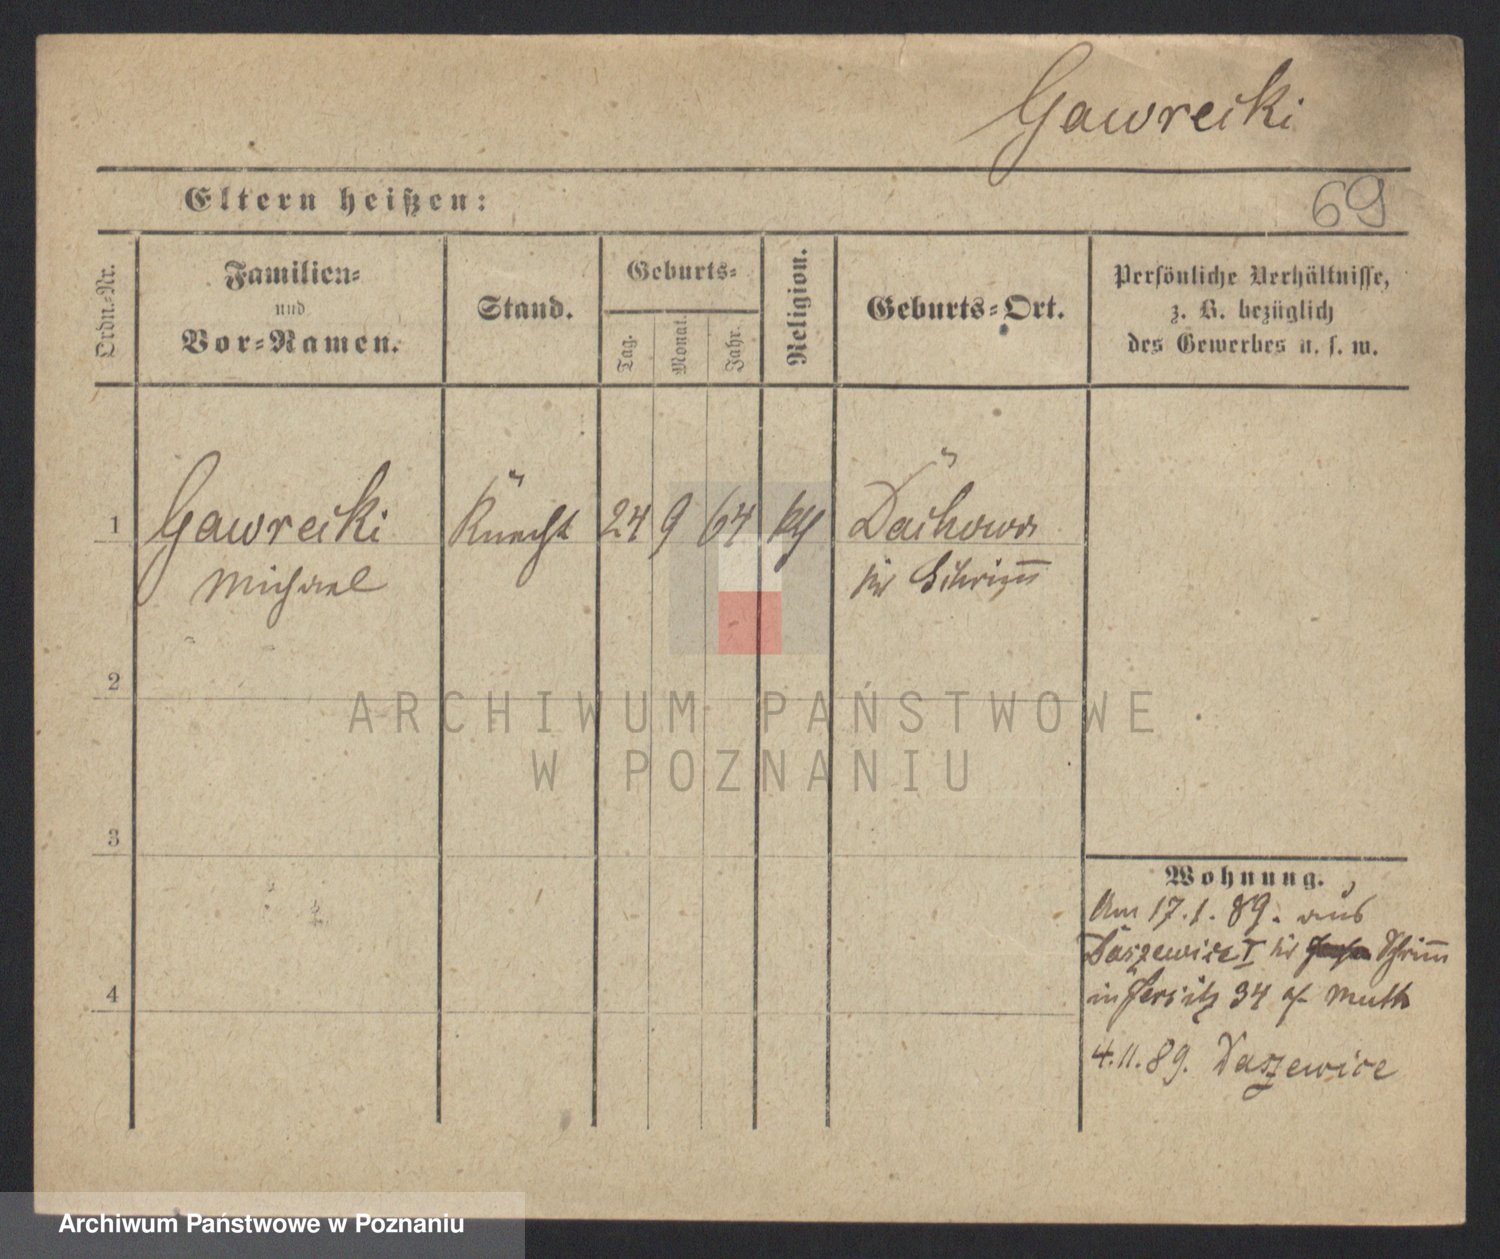 Gawrecki
Eltern heißen:
69
Ordn.-Nr.
Familien-
und
Vor-Namen.
Stand.
Geburts-
Tag.
Monat.
Jahr.
Religion.
Geburts-Ort.
Persönliche Verhältnisse,
z. B. bezüglich
des Gewerbes u. s. w.
1 Gawrecki Knecht 24 9 64 Dachowo
Michael Schrimm
2
3
4
ARCHIWUM PAŃSTWOWE
W POZNANIU
Wohnung.
Am 17.1.89. aus
Daszewice Schrimm
in Jersitz 34 Muth
4.11.89. Daszewice
Archiwum Państwowe w Poznaniu